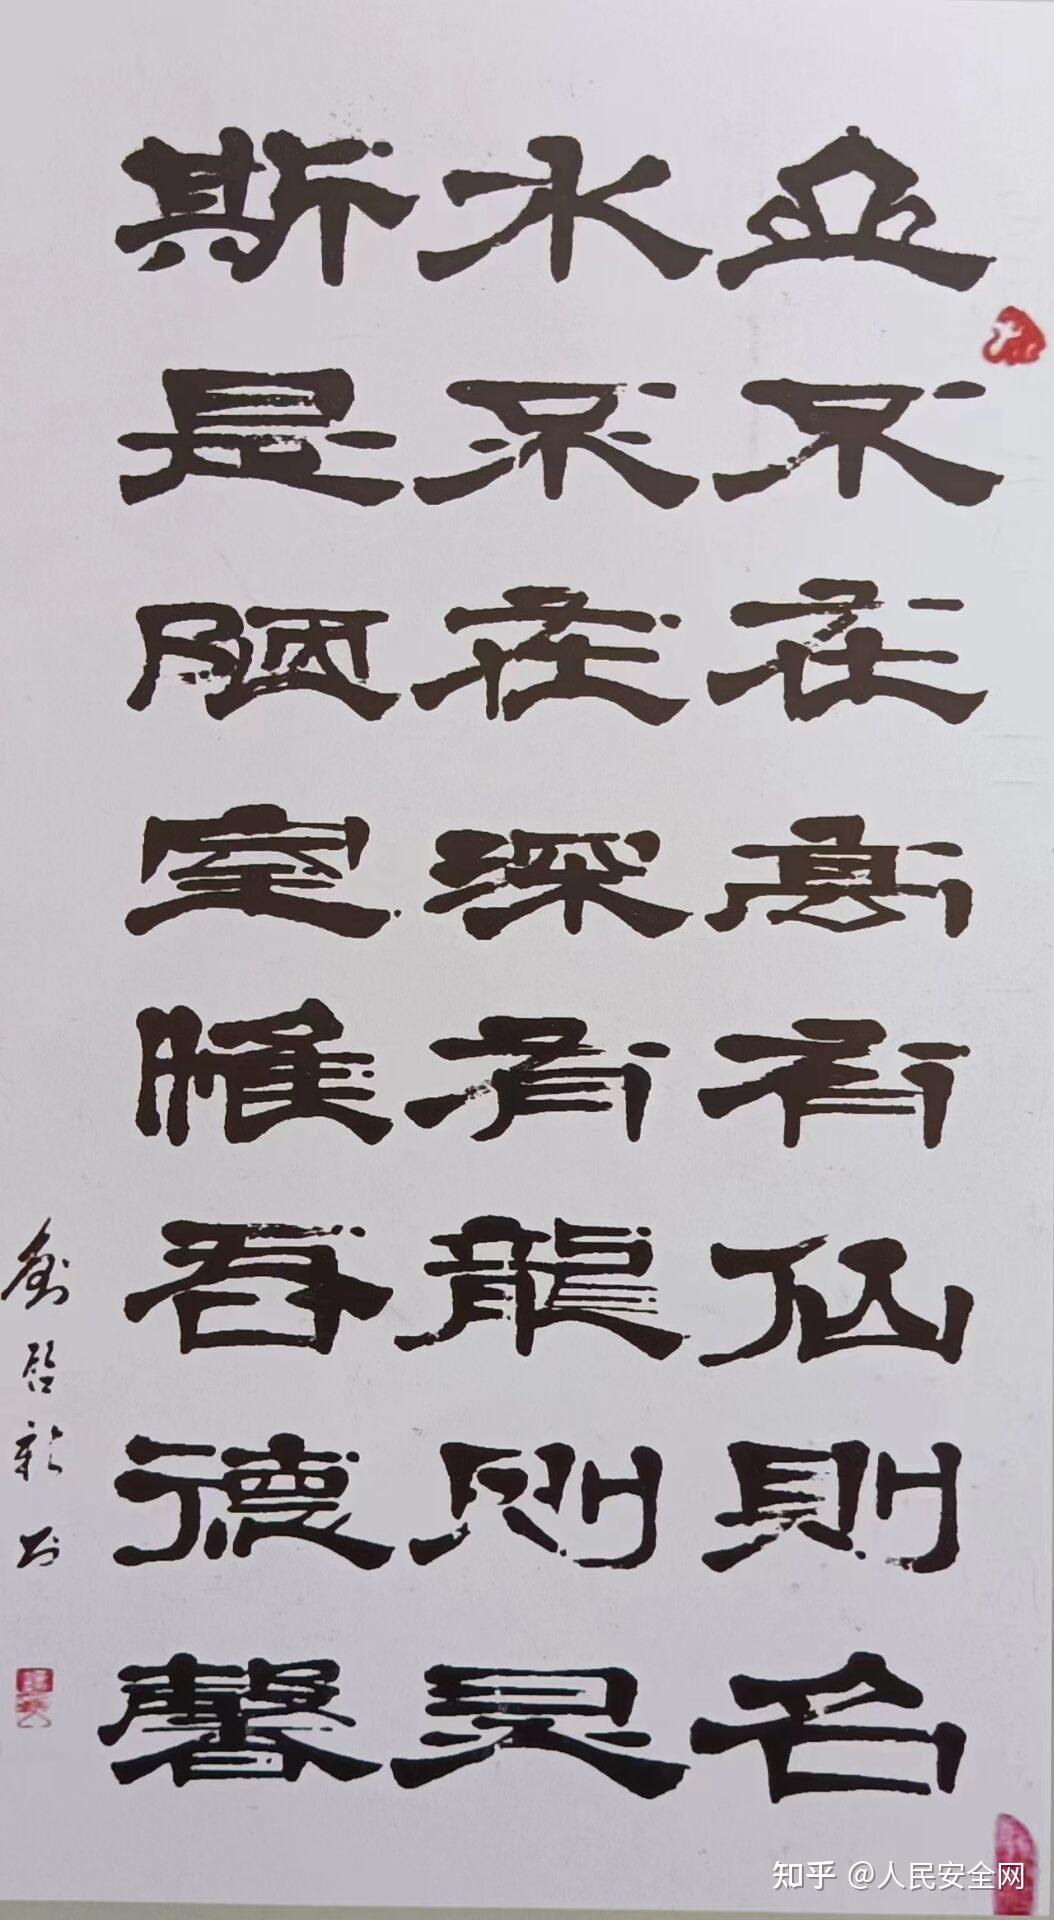 山不在高有仙則名
水不在深有龍则灵
斯是陋室惟吾德馨
劉启新书
知乎 @人民安全网